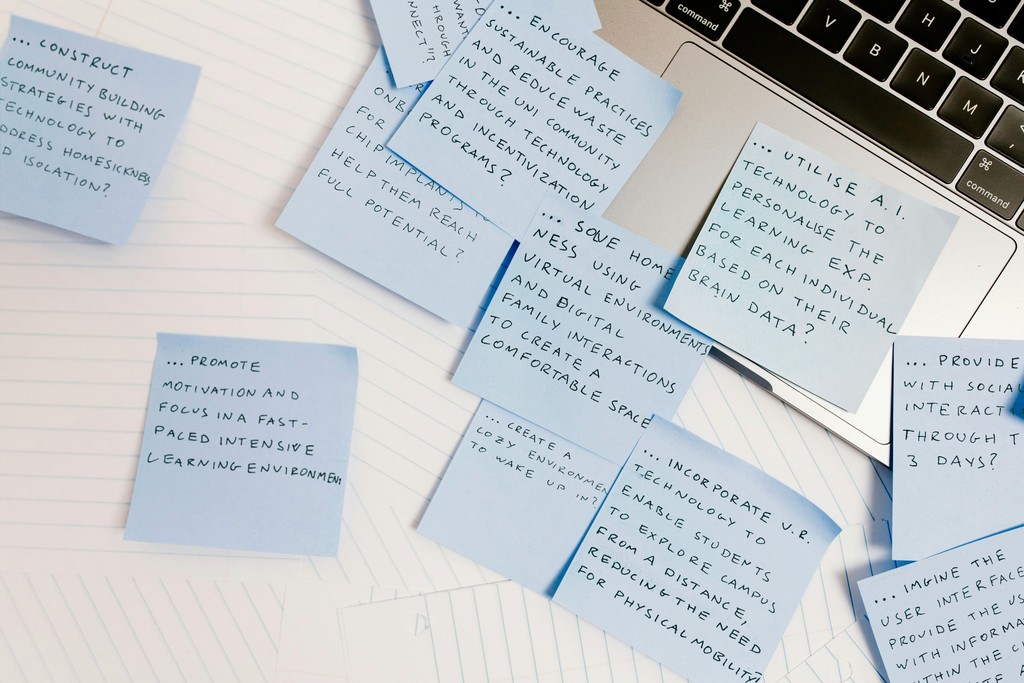 ... CONSTRUCT
COMMUNITY BUILDING
STRATEGIES WITH
TECHNOLOGY TO
ADDRESS HOMESICKNESS
ISOLATION?
WANT
THROUGH
CONNECT!!?
... ENCOURAGE
SUSTAINABLE PRACTICES
AND REDUCE WASTE
IN THE UNI COMMUNITY
THROUGH TECHNOLOGY
AND INCENTIVIZATION
PROGRAMS?
FOR
CHIP IMPLANTS TO
HELP THEM REACH
FULL POTENTIAL?
... SOLVE HOME
NESS USING
VIRTUAL ENVIRONMENTS
AND DIGITAL
FAMILY INTERACTIONS
TO CREATE A
COMFORTABLE SPACE
... UTILISE A.I.
TECHNOLOGY TO
PERSONALISE THE
LEARNING EXP.
FOR EACH INDIVIDUAL
BASED ON THEIR
BRAIN DATA?
... PROMOTE
MOTIVATION AND
FOCUS IN A FAST-
PACED INTENSIVE
LEARNING ENVIRONMENT
... CREATE A
COZY ENVIRONMEN
TO WAKE UP IN?
... INCORPORATE V.R.
TECHNOLOGY TO
ENABLE STUDENTS
TO EXPLORE CAMPUS
FROM A DISTANCE,
REDUCING THE NEED
FOR PHYSICAL MOBILITY?
... PROVIDE
WITH SOCIA
INTERACT
THROUGH T
3 DAYS?
... IMGINE THE
USER INTERFACE
PROVIDE THE US
WITH INFORMA
WITHIN THE C
command
V
B
H
N
J
M
K
<
command